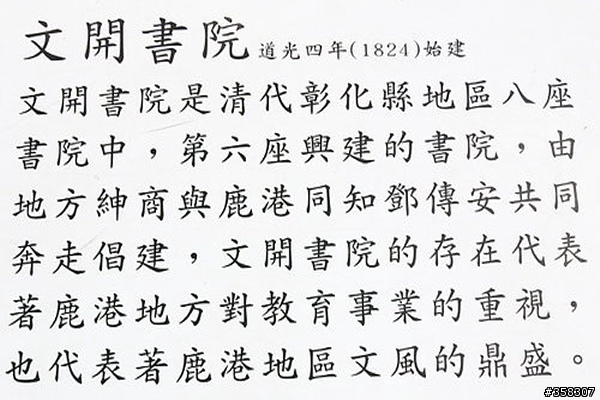 文開書院 道光四年(1824)始建
文開書院是清代彰化縣地區八座
書院中，第六座興建的書院，由
地方紳商與鹿港同知鄧傳安共同
奔走倡建，文開書院的存在代表
著鹿港地方對教育事業的重視，
也代表著鹿港地區文風的鼎盛。
#358307